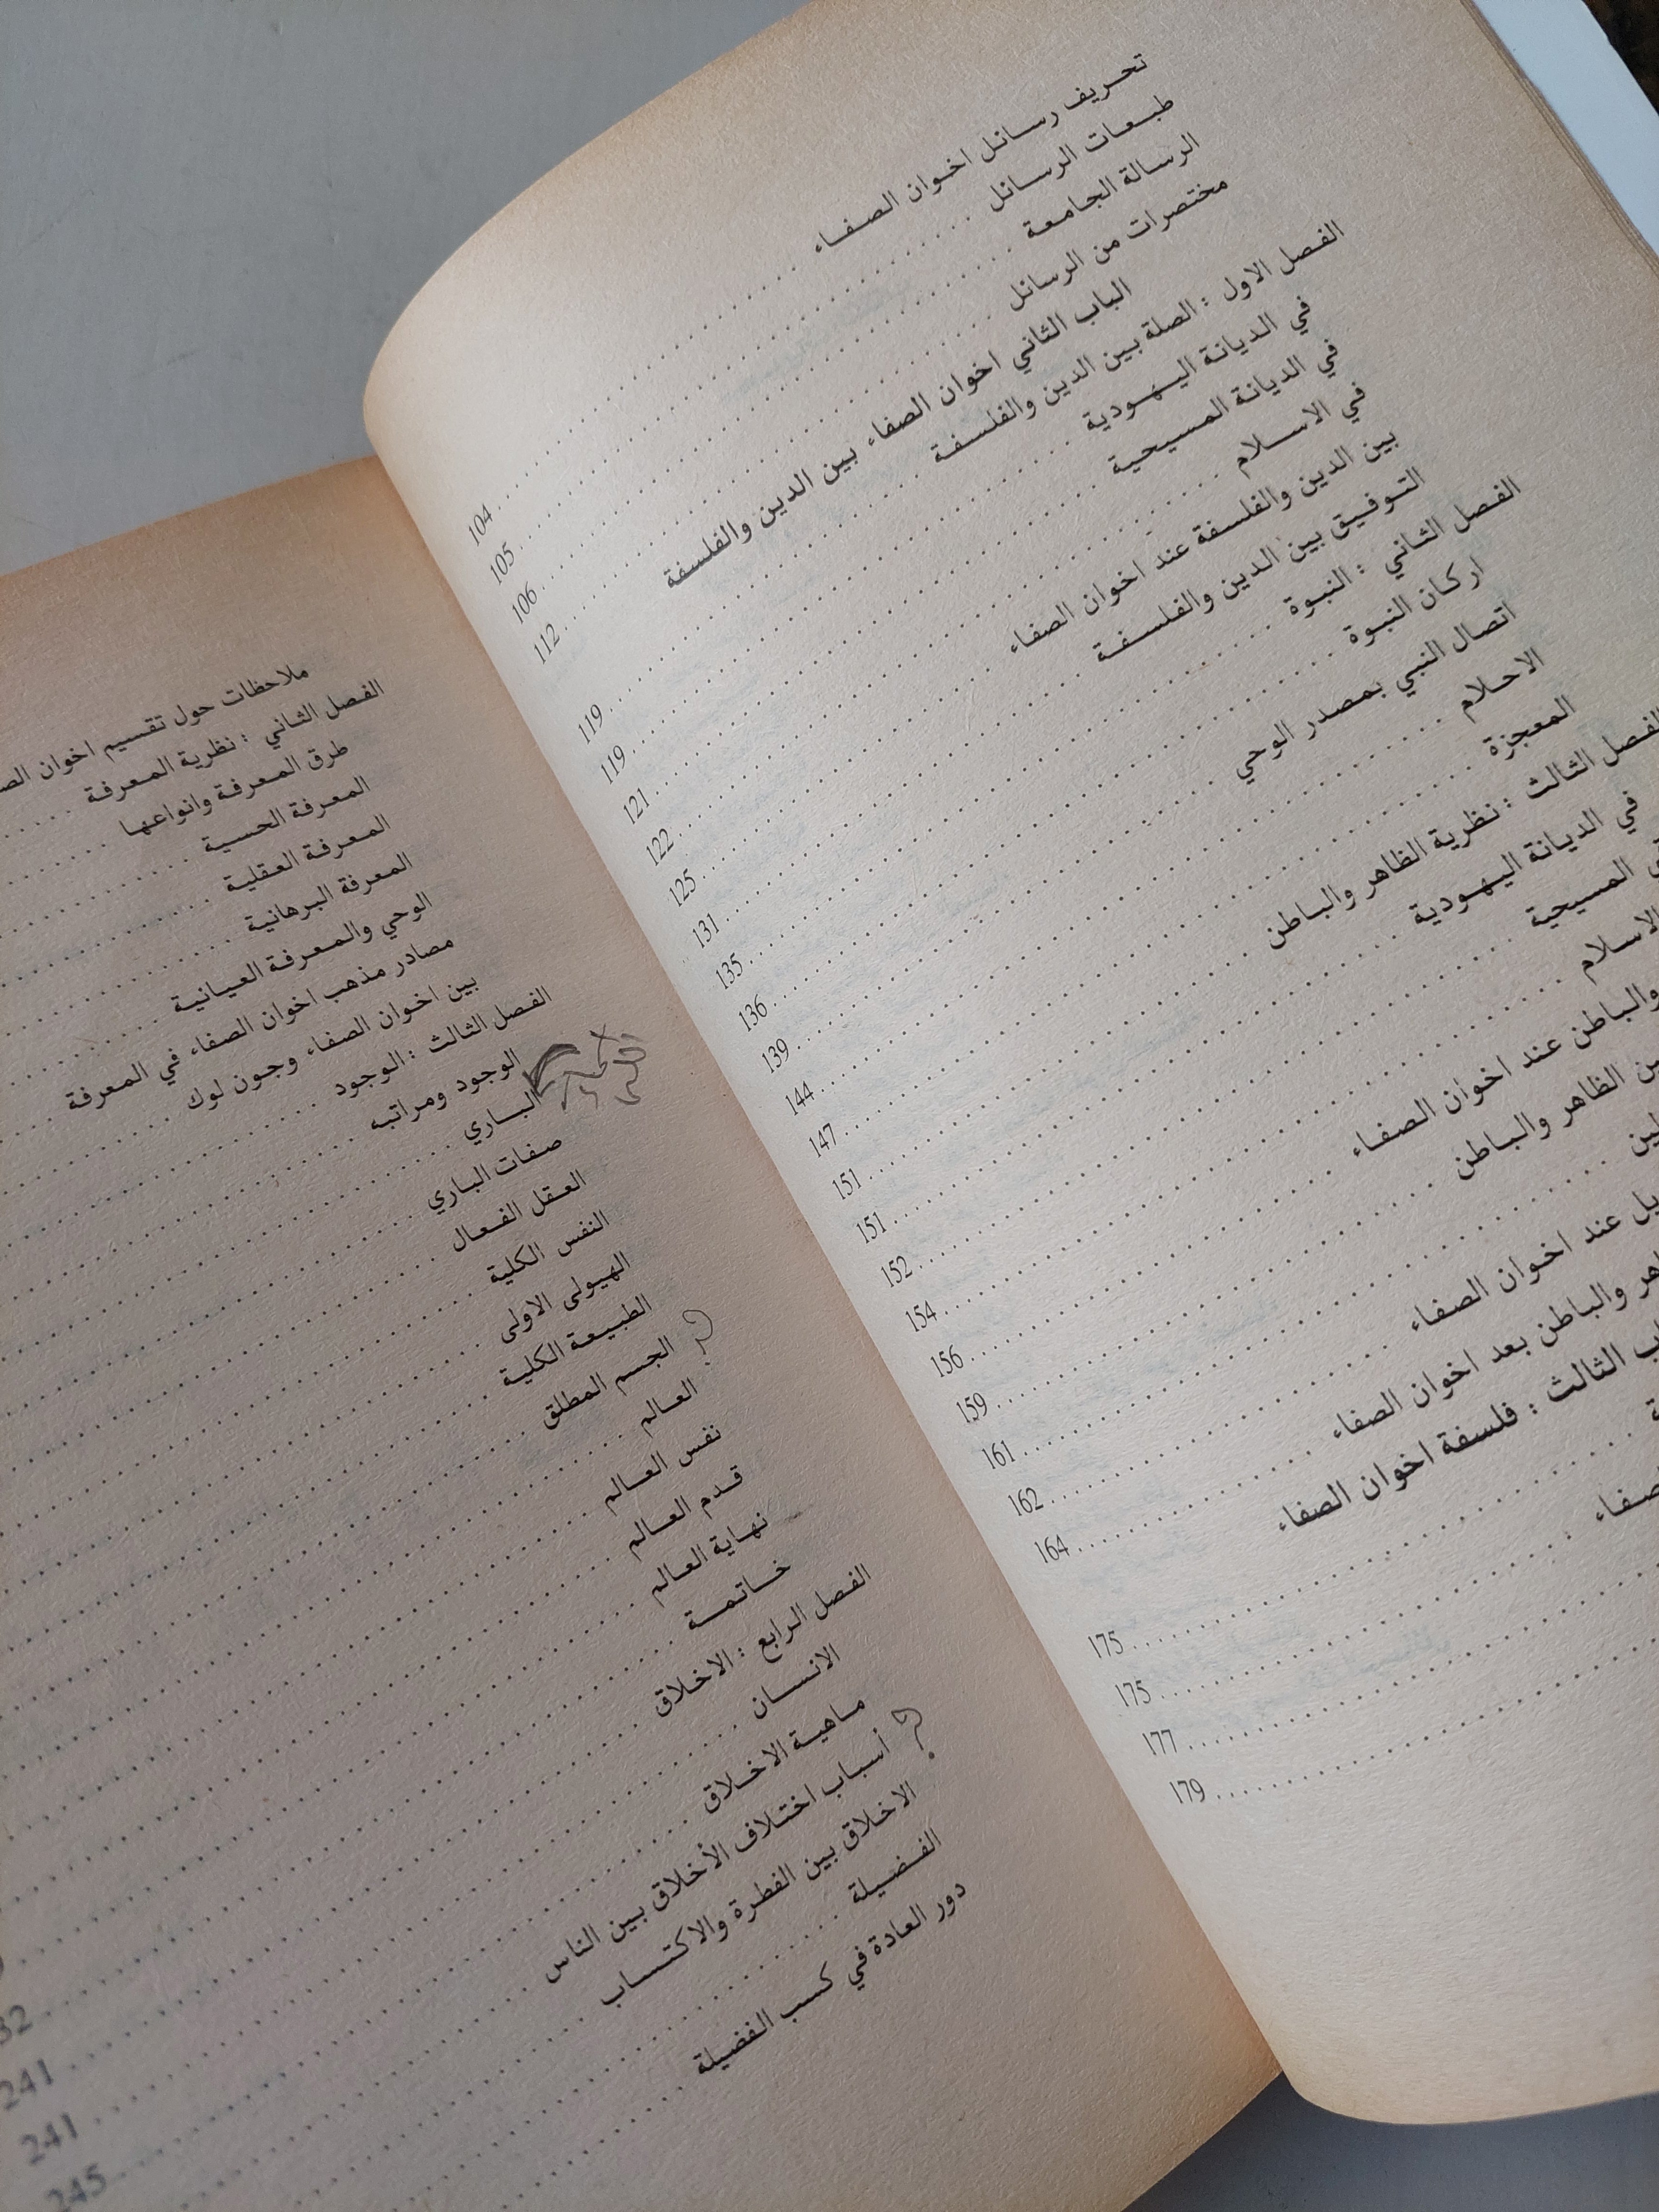 تحريف رسائل اخوان الصفاء . . . . . 104
طبعات الرسائل . . . . . 105
الرسالة الجامعة . . . . . 106
مختصرات من الرسائل . . . . . 112
الباب الثاني اخوان الصفاء بين الدين والفلسفة
الفصل الاول : الصلة بين الدين والفلسفة . . . . . 119
في الديانة اليهودية . . . . . 119
في الديانة المسيحية . . . . . 121
في الاسلام . . . . . 122
بين الدين والفلسفة عند اخوان الصفاء . . . . . 125
التوفيق بين الدين والفلسفة . . . . . 131
الفصل الثاني : النبوة . . . . . 135
اركان النبوة . . . . . 136
اتصال النبي بمصدر الوحي . . . . . 139
الاحلام . . . . . 144
المعجزة . . . . . 147
الفصل الثالث : نظرية الظاهر والباطن . . . . . 151
في الديانة اليهودية . . . . . 151
المسيحية . . . . . 152
الاسلام . . . . . 154
والباطن عند اخوان الصفاء . . . . . 156
الظاهر والباطن . . . . . 159
. . . . . 161
عند اخوان الصفاء . . . . . 162
والباطن بعد اخوان الصفاء . . . . . 164
الثالث : فلسفة اخوان الصفاء
. . . . . 175
. . . . . 175
. . . . . 177
. . . . . 179
ملاحظات حول تقسيم اخوان
الفصل الثاني : نظرية المعرفة
طرق المعرفة وانواعها
المعرفة الحسية
المعرفة العقلية
المعرفة البرهانية
الوحي والمعرفة العيانية
مصادر مذهب اخوان الصفاء في المعرفة
بين اخوان الصفاء وجون لوك
الفصل الثالث : الوجود
الوجود ومراتبه
الباري
صفات الباري
العقل الفعال
النفس الكلية
الهيولى الاولى
الطبيعة الكلية
الجسم المطلق
العالم
نفس العالم
قدم العالم
نهاية العالم
خاتمة
الفصل الرابع : الاخلاق
الانسان
ماهية الاخلاق
أسباب اختلاف الأخلاق بين الناس
الاخلاق بين الفطرة والاكتساب
الفضيلة
دور العادة في كسب الفضيلة
241
241
245